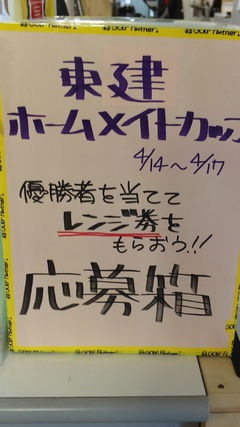 東建
ホームメイトカップ
4/14～4/17
優勝者を当てて
レンジ券を
もらおう!!
応募箱
GOLF Partner!